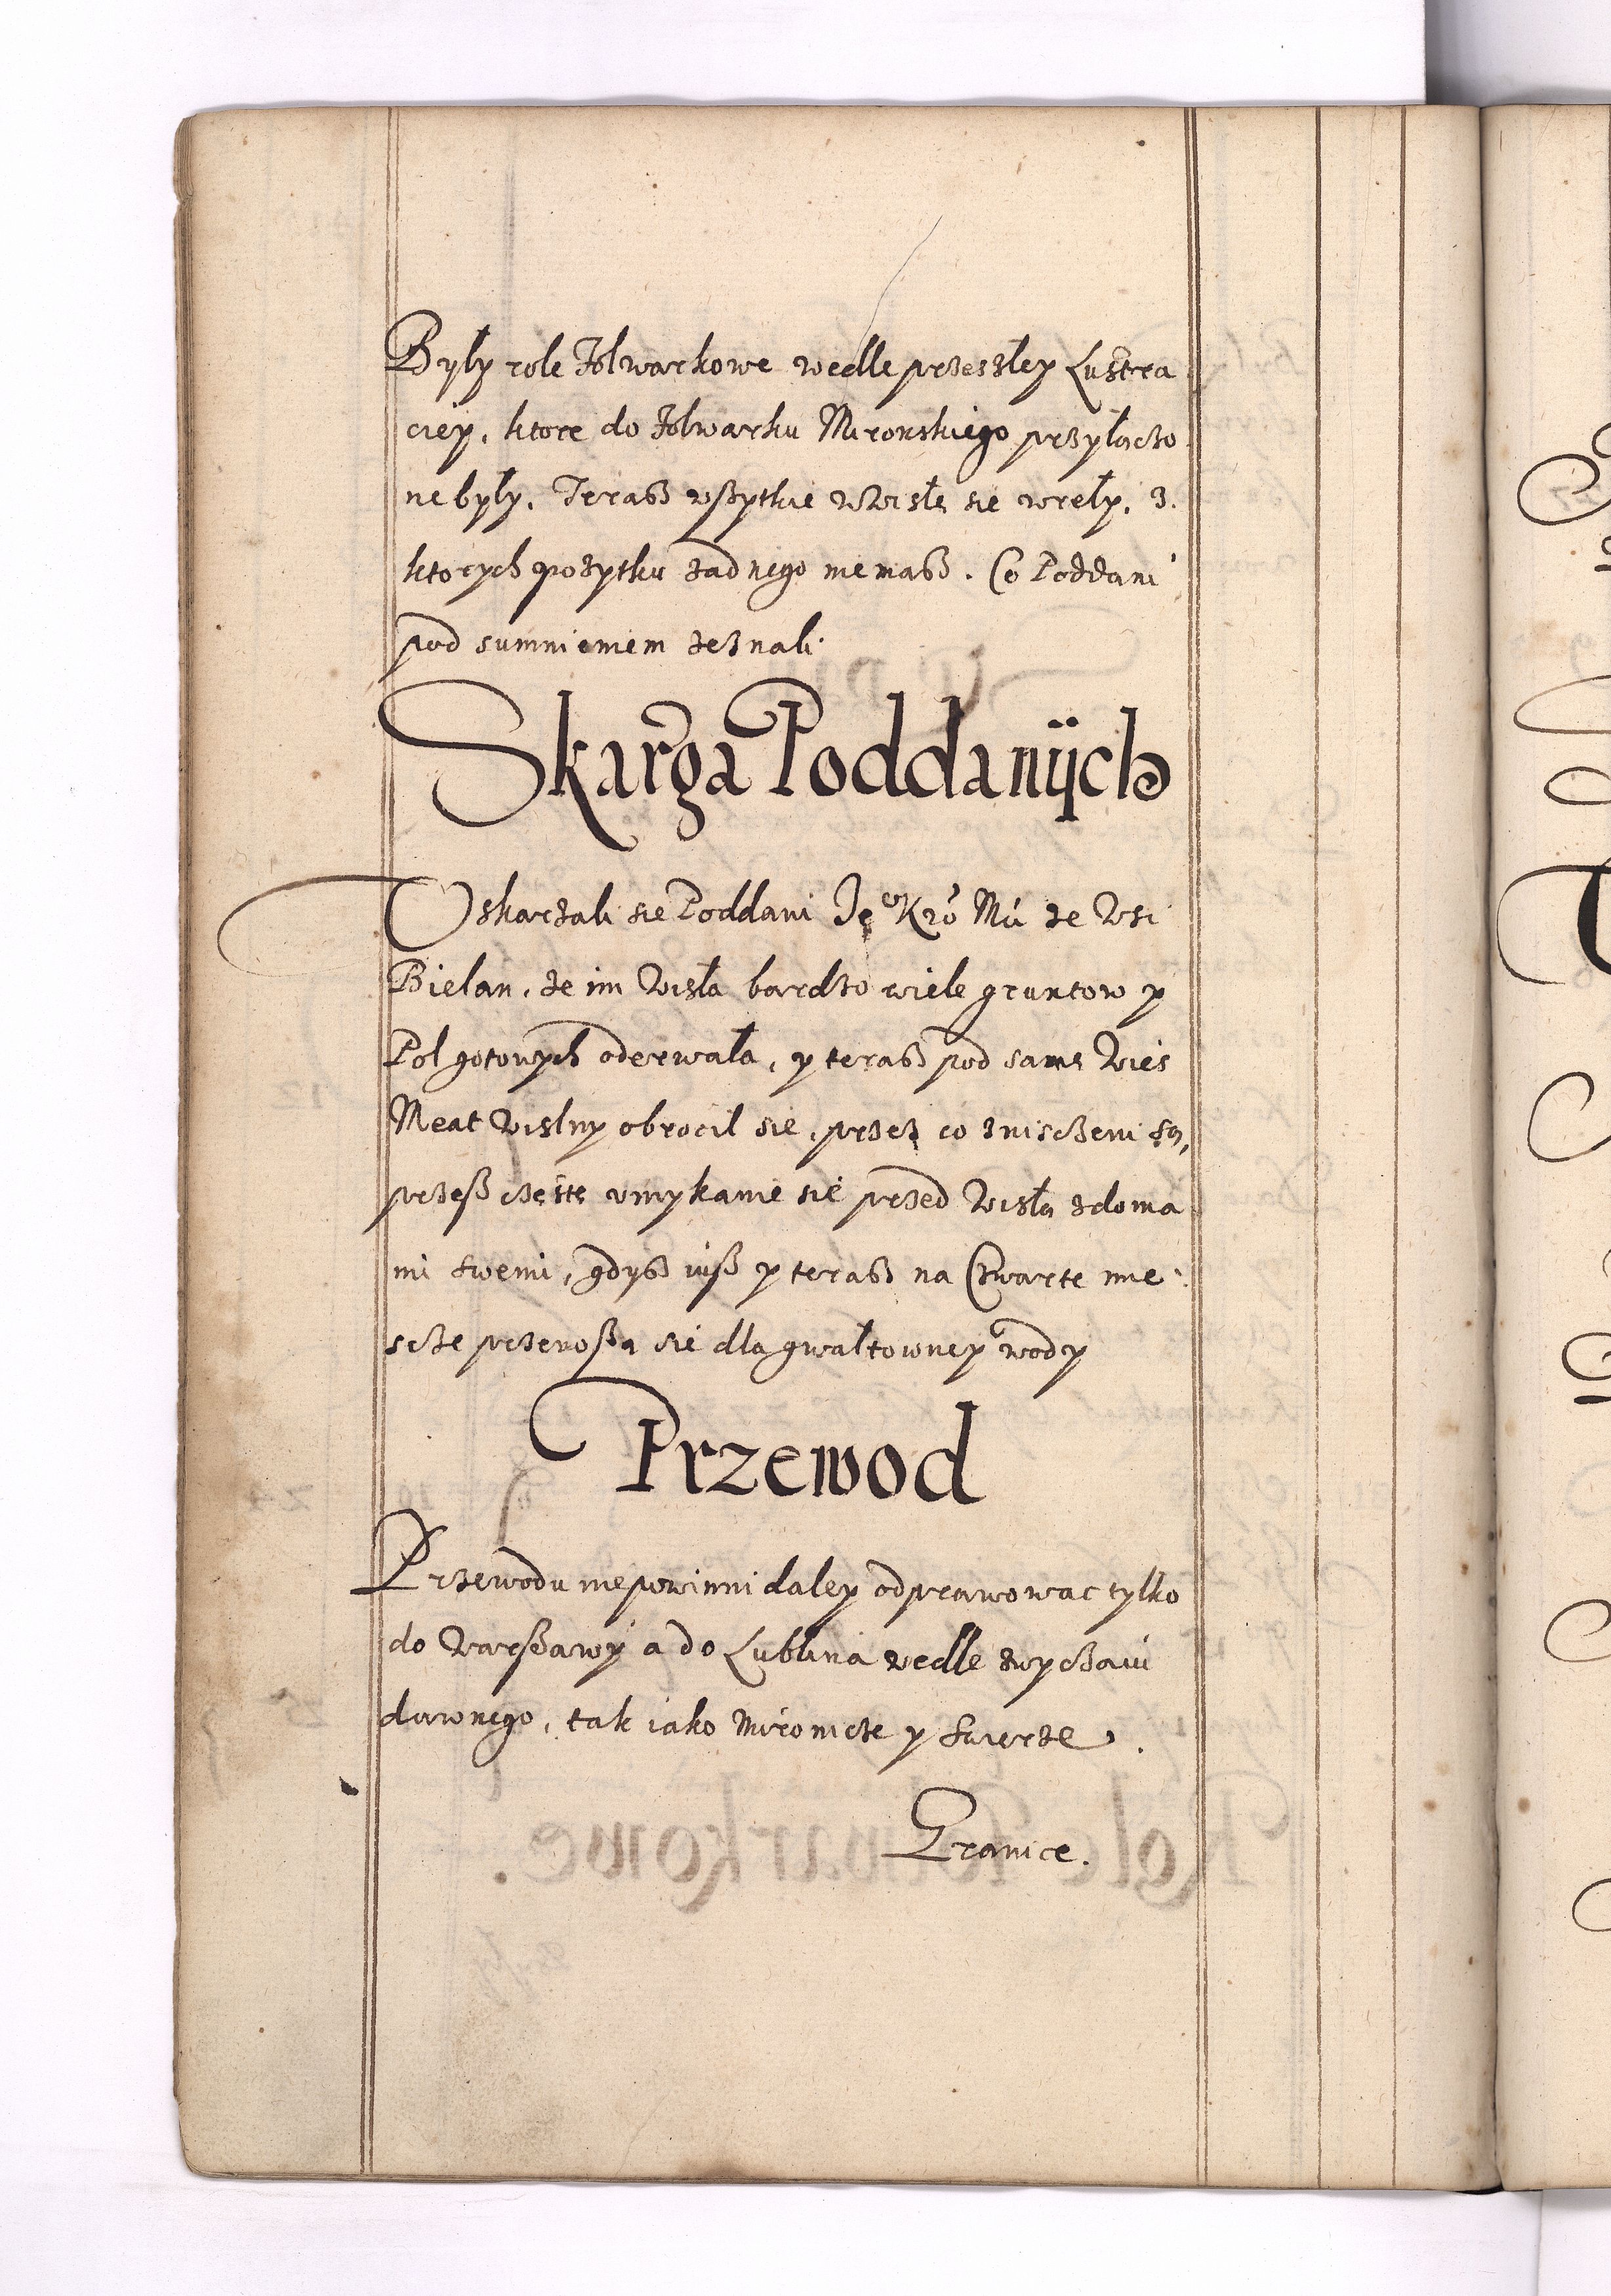 Były role Folwarkowe wedle przeszłey Lustra
ciey, ktore do Folwarku Mironskiego przyłączo
ne były. Teraß wßytkie w Wisłę sie wreły. z
ktorych pożytku żadnego niemaß. Co Poddani
pod sumnieniem zeznali
Skarga Poddanÿch
Uskarżali sie Poddani Je° Kro Mci ze Wsi
Bielan, że im Wisła bardzo wiele gruntow y
Pol gotowych oderwała, y teraß pod samę Wieś
Meat Wislny obrocil sie, przez co zniszczeni są,
przeß częste vmykanie sie przed Wisłą z doma
mi swemi, gdyß iuß y teraß na Czwarte mie
scze przenoßą sie dla gwałtowney wody
Przewod
Przewodu niepowinni daley odprawowac tylko
do Warßawy a do Lublina wedle zwyczaiu
dawnego, tak iako Mironicze y Swierze.
Granice.